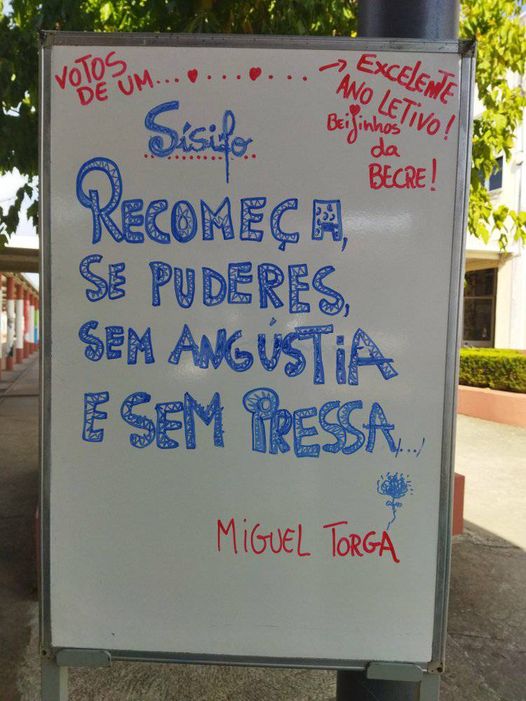 VOTOS
DE UM......
→ EXCELENTE
ANO LETIVO!
Beijinhos
da
BECRE!
Sísifo
RECOMEÇA,
SE PUDERES,
SEM ANGÚSTIA
E SEM PRESSA,../
MIGUEL TORGA